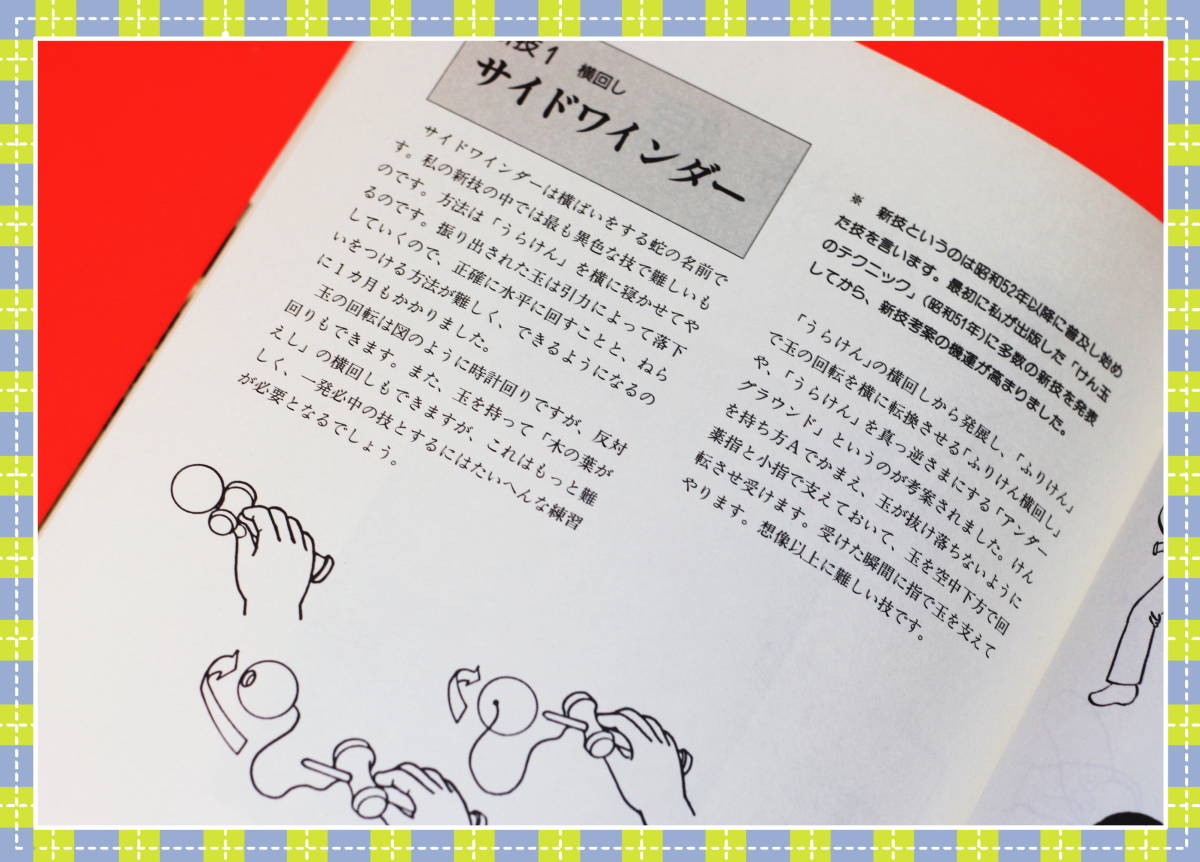 技1 横回し
サイドワインダー
サイドワインダーは横ばいをする蛇の名前で
す。私の新技の中では最も異色な技で難しいも
のです。方法は「うらけん」を横に寝かせてや
るのです。振り出された玉は引力によって落下
していくので、正確に水平に回すことと、ねら
いをつける方法が難しく、できるようになるの
に1カ月もかかりました。
玉の回転は図のように時計回りですが、反対
回りもできます。また、玉を持って「木の葉が
えし」の横回しもできますが、これはもっと難
しく、一発必中の技とするにはたいへんな練習
が必要となるでしょう。
※ 新技というのは昭和52年以降に普及し始め
た技を言います。最初に私が出版した「けん玉
のテクニック」(昭和51年)に多数の新技を発表
してから、新技考案の機運が高まりました。
「うらけん」の横回しから発展し、「ふりけん」
で玉の回転を横に転換させる「ふりけん横回し」
や、「うらけん」を真っ逆さまにする「アンダー
グラウンド」というのが考案されました。けん
を持ち方Aでかまえ、玉が抜け落ちないように
薬指と小指で支えておいて、玉を空中下方で回
転させ受けます。受けた瞬間に指で玉を支えて
やります。想像以上に難しい技です。